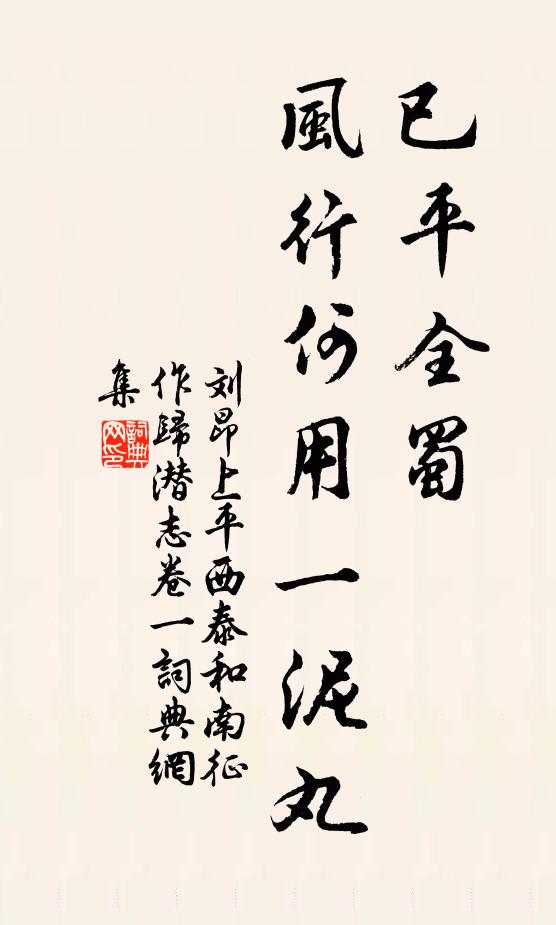 已平全蜀
風行何用一泥丸
刘昂上平西泰和南征
作歸潜志卷一詞典網
集
詞典
网印